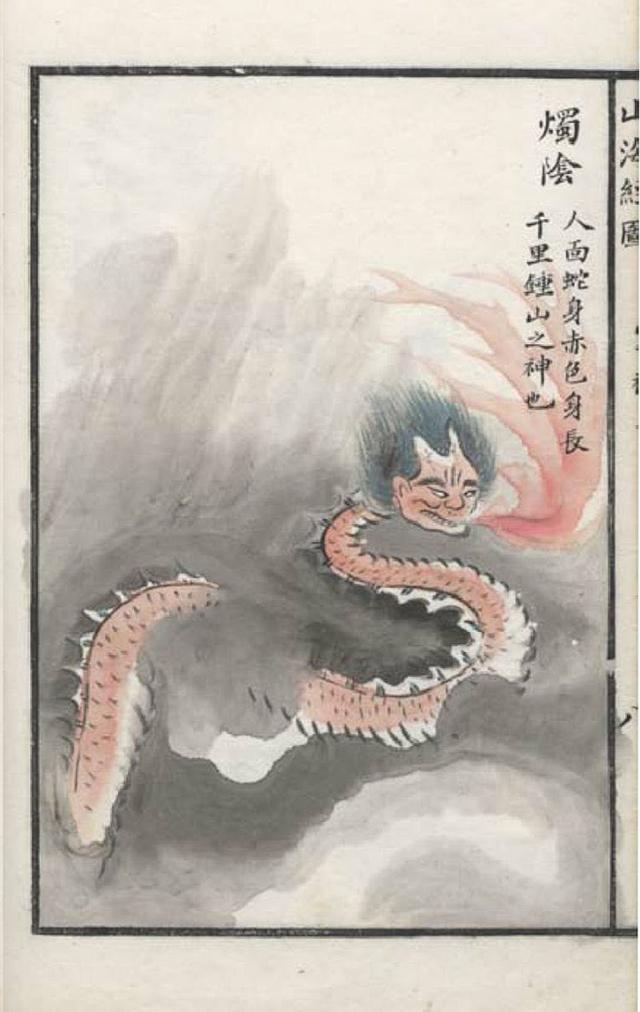 山海經圖
燭陰
人面蛇身赤色身長
千里鍾山之神也
八